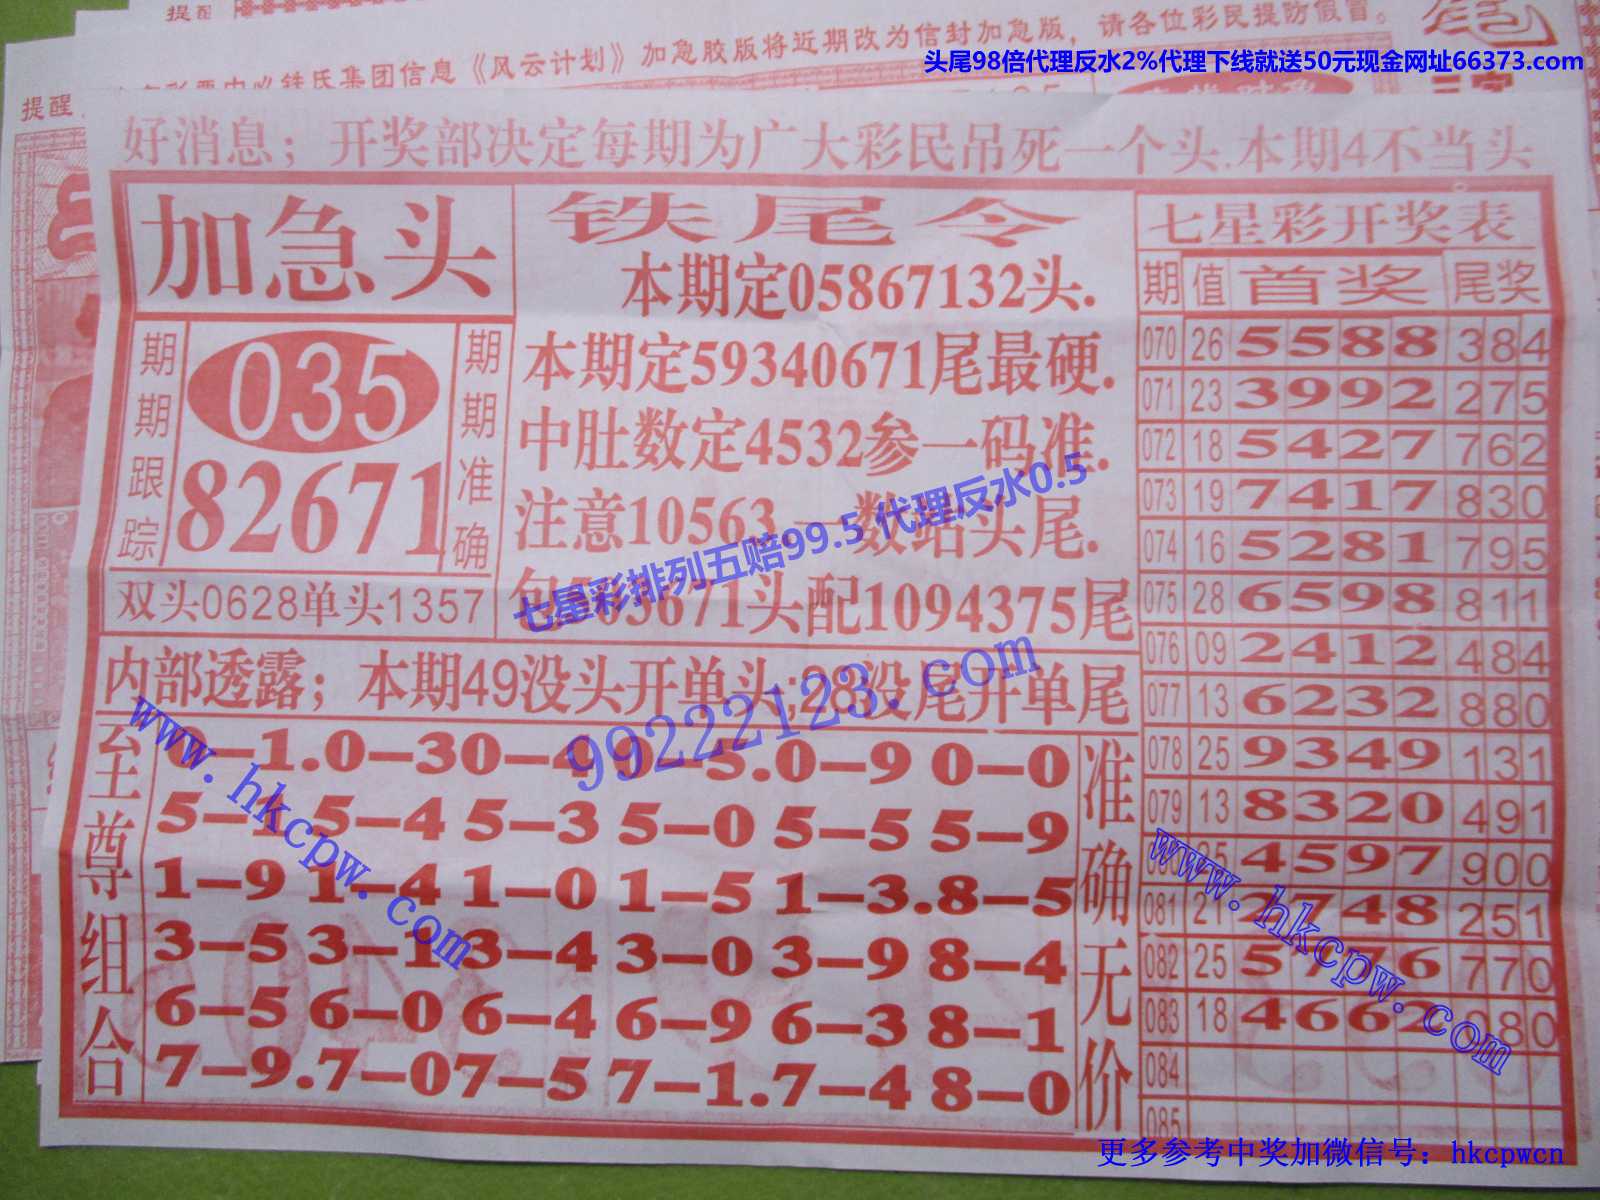 提醒
加急胶版将近期改为信封加急版，请各位彩民提防假冒。
提醒
集团信息《风云计划》
头尾98倍代理反水2%代理下线就送50元现金网址66373.com
好消息；开奖部决定每期为广大彩民吊死一个头.本期4不当头
加急头
期期跟踪
035
82671
期期准确
双头0628单头1357
铁尾令
本期定05867132头.
本期定59340671尾最硬.
中肚数定4532参一码准.
注意10563.一数站头尾.
头配1094375尾
七星彩排列五赔99.5 代理反水0.5
内部透露；本期49没头开单头;28没尾开单尾
99222123.com
www.hkcpw.com
至尊组合
0-1.0-30-4 0-5.0-9 0-0
5-1 5-4 5-3 5-0 5-5 5-9
1-9 1-4 1-0 1-5 1-3.8-5
3-5 3-1 3-4 3-0 3-9 8-4
6-5 6-0 6-4 6-9 6-3 8-1
7-9.7-07-5 7-1.7-4 8-0
准确无价
七星彩开奖表
期 值 首奖 尾奖
070 26 5588 384
071 23 3992 275
072 18 5427 762
073 19 7417 830
074 16 5281 795
075 28 6598 811
076 09 2412 484
077 13 6232 880
078 25 9349 131
079 13 8320 491
25 4597 900
081 21 2748 251
082 25 5776 770
083 18 4662 080
084
085
www.hkcpw.com
更多参考中奖加微信号：hkcpwcn